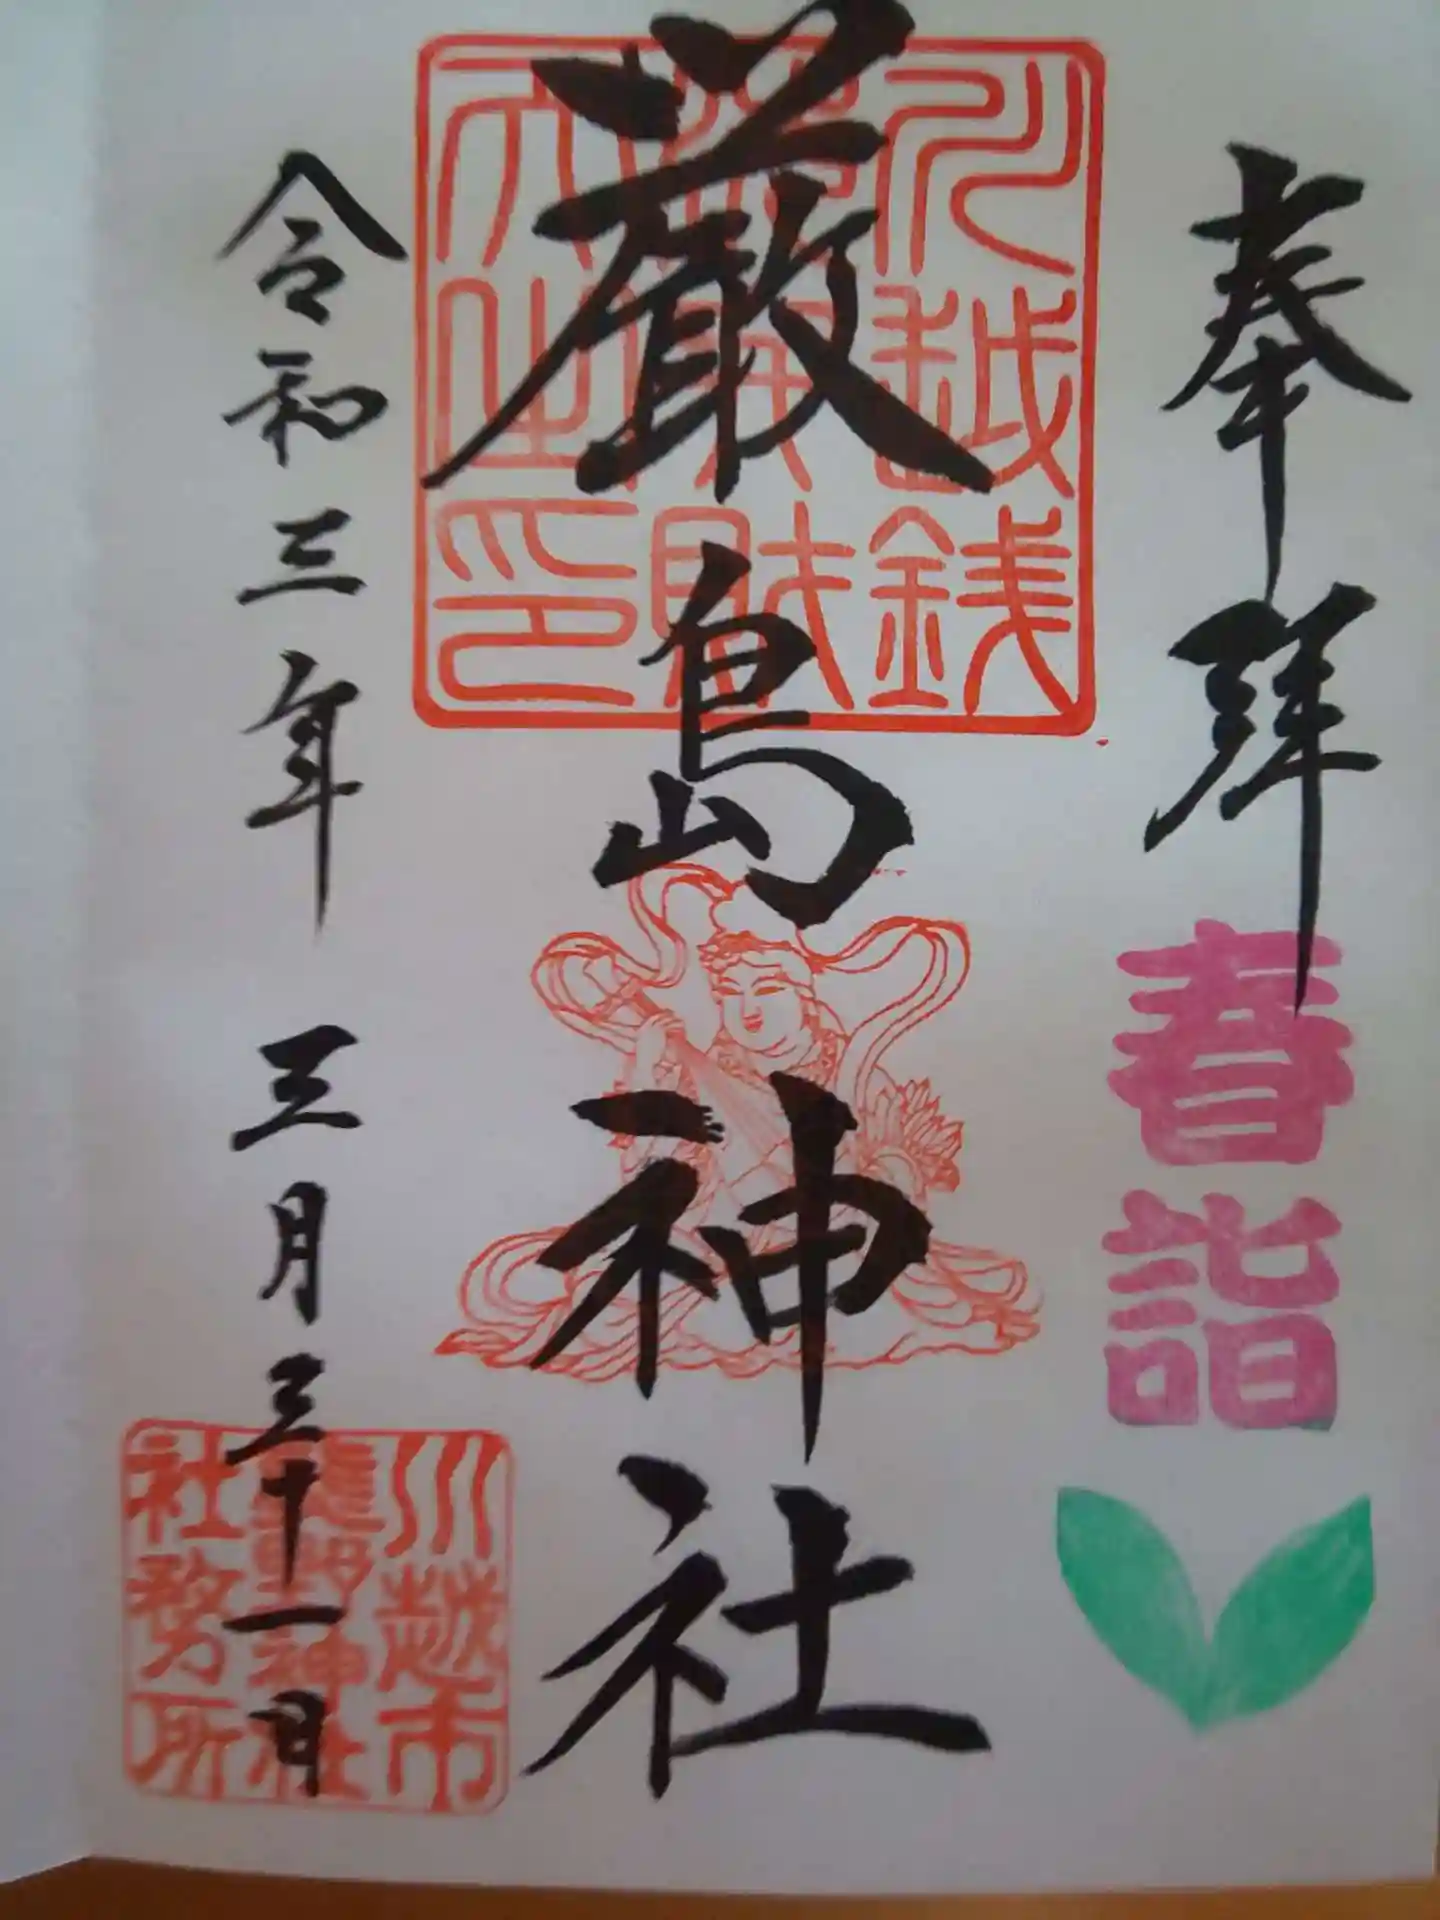 奉拝
春詣
川越銭
財
印
厳島神社
令和三年 三月三十一日
川越市
熊野神社
社務所